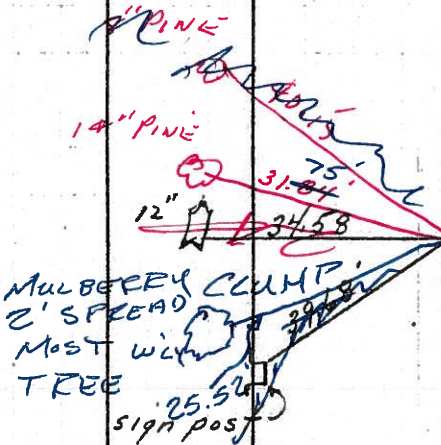 PINE
14" PINE
31.84'
75'
12"
34.58
MULBERRY CLUMP
2' SPREAD
MOST W'LY
TREE
25.52
sign post